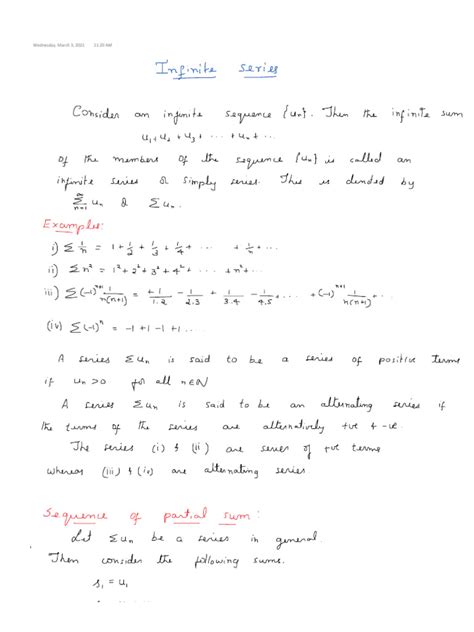 Wednesday, March 3, 2021 11:20 AM
Infinite series
Consider an infinite sequence {uₙ}. Then the infinite sum
u₁+u₂+u₃+ ··· +uₙ+ ···
of the members of the sequence {uₙ} is called an
infinite series or simply series. This is denoted by
∞Σn=1 uₙ or Σuₙ.
Examples:
i) Σ 1/n = 1 + 1/2 + 1/3 + 1/4 + ··· + 1/n + ···
ii) Σn² = 1²+2²+3²+4²+ ··· +n²+ ···
iii) Σ(-1)ⁿ⁺¹ 1/n(n+1) = +1/1.2 - 1/2.3 + 1/3.4 - 1/4.5 + ··· +(-1)ⁿ⁺¹ 1/n(n+1) + ···
(iv) Σ(-1)ⁿ = -1+1-1+1 ···
A series Σuₙ is said to be a series of positive terms
if uₙ>0 for all n∈N
A series Σuₙ is said to be an alternating series if
the terms of the series are alternatively +ve & -ve.
The series (i) & (ii) are series of +ve terms
whereas (iii) & (iv) are alternating series.
Sequence of partial sum:
Let Σuₙ be a series in general.
Then consider the following sums.
s₁ = u₁